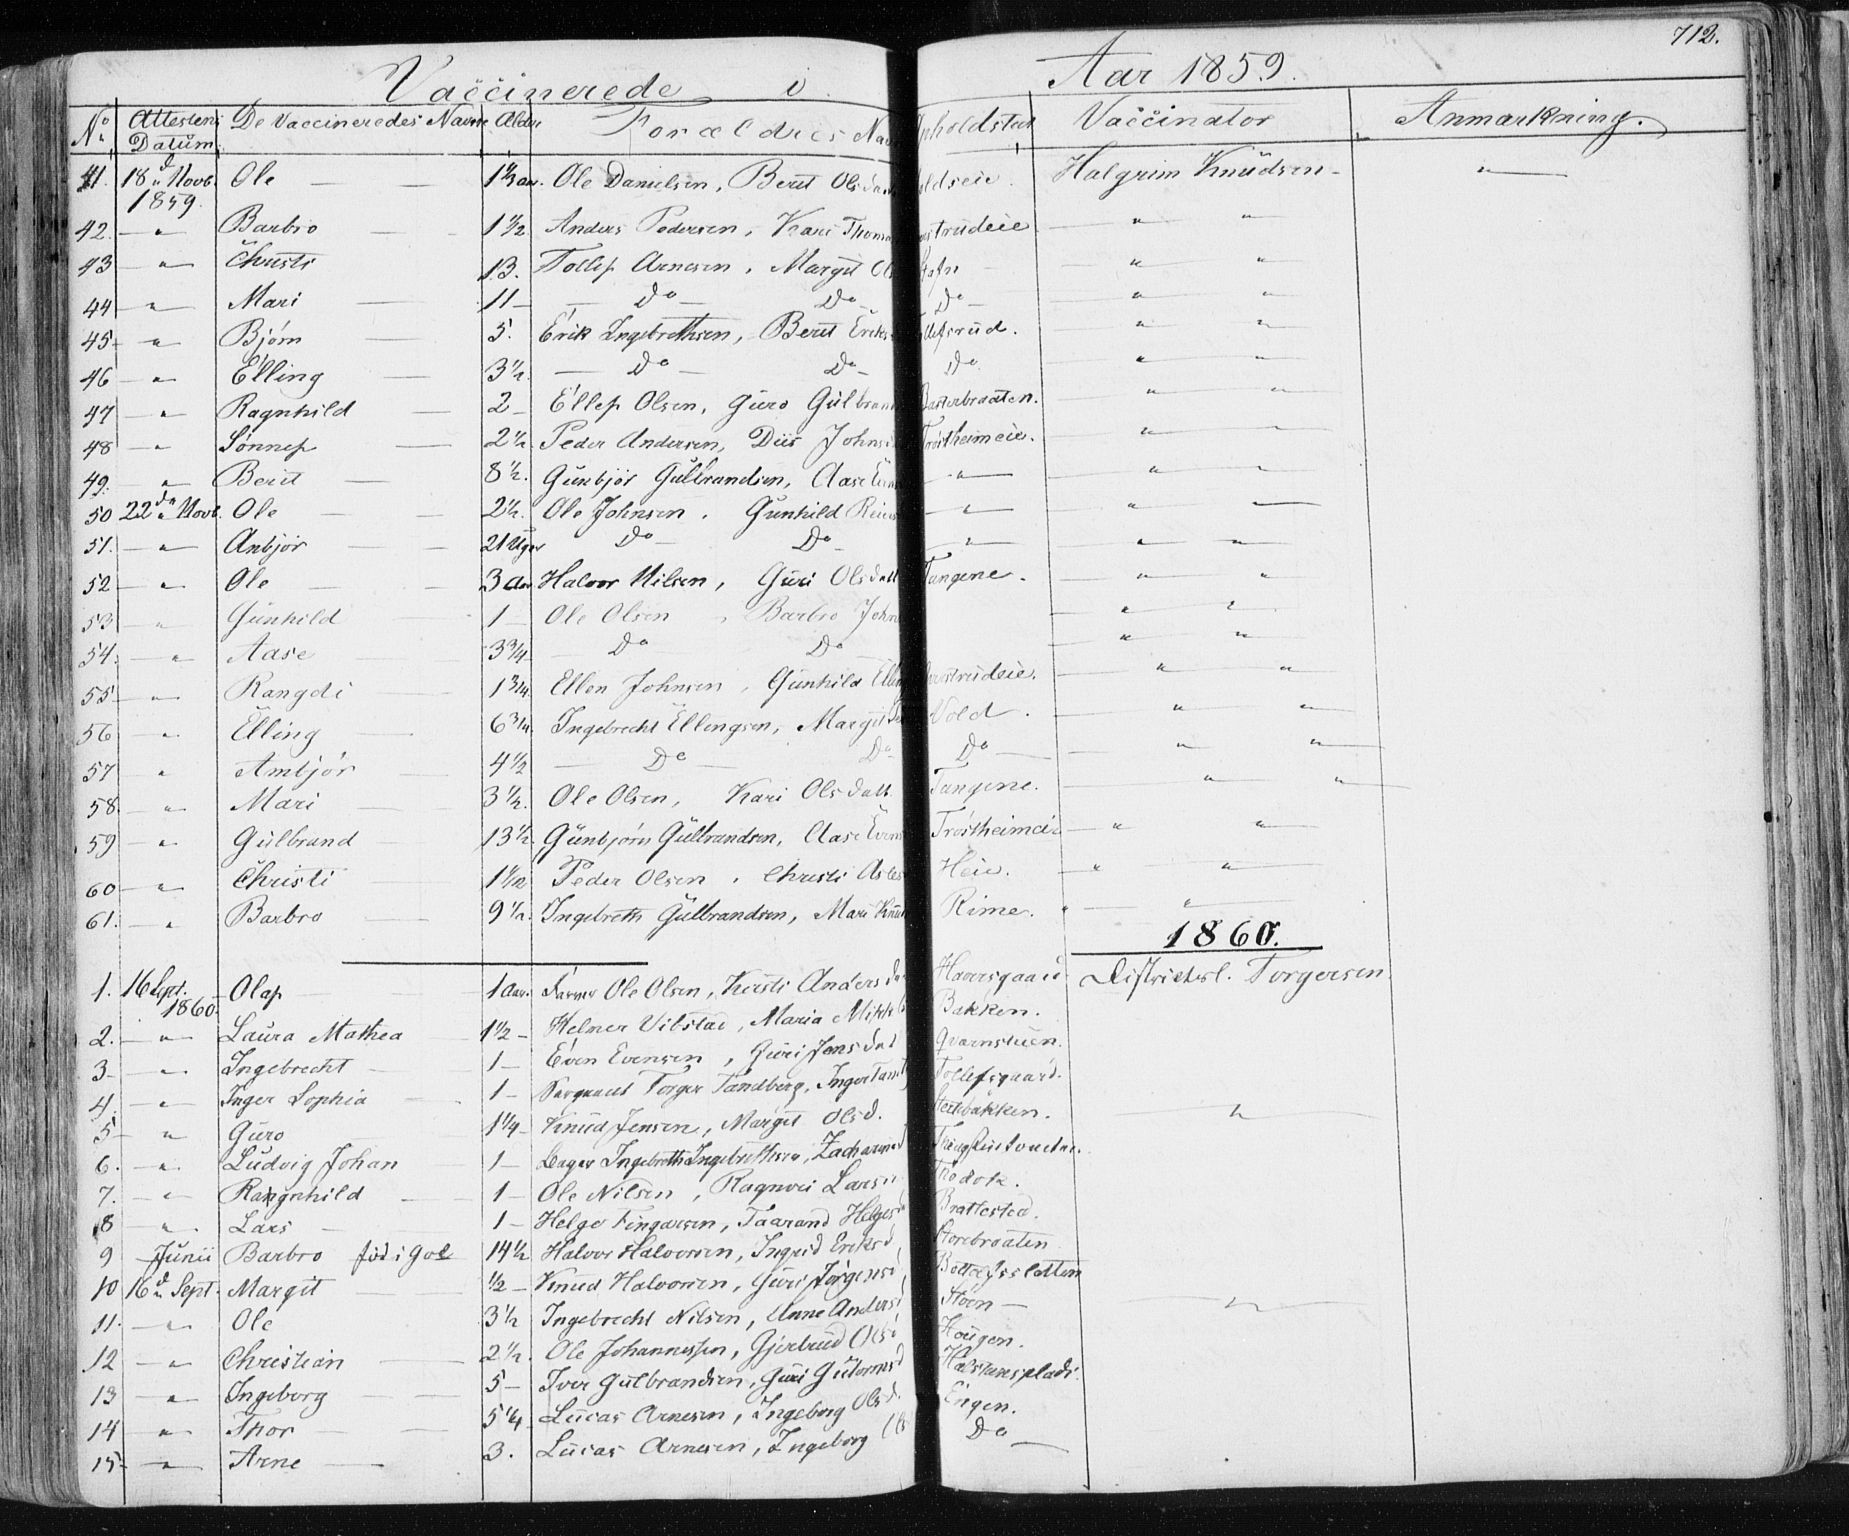 712.
Vaccinerede i Aar 1859.
No Attestens Datum. De Vaccineredes Navne Alder Forældres Nav Opholdsted Vaccinator Anmærkning.
41. 18d Novb. 1859. Ole — 1 1/3 aar. Ole Danielsen, Berit Olsdatt oldseie. Halgrim Knudsen - — " —
42. — " Barbro — 1 1/2 Anders Pedersen, Kari Thoma strudeie — " "
43 — " — Christi 13. Tollef Arnesen, Margit Ol — " "
44 — " — Mari — 11 — Do — Do — Do — — " "
45 — " — Bjørn — 5. Erik Ingebrethsen, Berit Eriks llefsrud. — " "
46 — " — Elling — 3 1/2. — Do — Do — Do — " "
47 — " — Ragnhild — 2 — Ellef Olsen, Guro Gulbran Sasterbraaten. — " "
48 — " — Sønnef — 2 1/2 Peder Andersen, Diis Johns Trøstheimeie. — " "
49. — " Berit — 8 1/2. Gunbjør Gulbrandsen, Aase Even — " — — " "
50 22de Novb. Ole — 2 1/2. Ole Johnsen. Gunhild Reiers — " — — " "
51. — " — Anbjør — 21 Uger Do — Do — — " — — " "
52 — " Ole — 3 aar Halvor Nilsen, Guri Olsdatt Tangene. — " "
53 — " Gunhild — 1 — Ole Olsen, Barbro John — " "
54. — " Aase — 3 3/4 — Do — Do — — " "
55 — " Rangdi — 1 3/4. Ellen Johnsen, Gunhild Elling strudeie. — " "
56 — " Elling — 6 3/4. Ingebrecht Ellengsen, Margit Vold. — " "
57 — " Ambjør — 4 1/2 — Do — Do Do — — " "
58. — " Mari — 3 1/2. Ole Olsen, Kari Olsdatt. Tangene. — " "
59 — " Gulbrand — 13 1/2. Gunbjørn Gulbrandsen, Aase Evens Trøstheimeie — " "
60 — " Christi — 1 1/2 Peder Olsen. Christi Asles Heie. — " "
61. — " Barbro — 9 1/2. Ingebreth Gulbrandsen, Mari Knud Rime. — " —
1860.
1. 16 Sept. 1860. Olaf — 1 aar. Farver Ole Olsen, Kersti Andersda Haversgaard Districtsl. Torgersen.
2. — " Laura Mathea — 1 1/2 — Helmer Vibstad, Maria Mikk Bakken.
3 — " Ingebrecht — 1 — Even Evensen, Guri Jensdat Qvernstuen.
4. — " Inger Sophia — 1 — Torger Tandberg, Inger Tollefsgaard.
5 — " Guro 1 1/4 — Knud Jensen, Margit Olsd. bakken. — " —
6. — " Ludvig Johan 1 — Ingebreth Ingebrethsen,
7. — " Rangnhild — 1 — Ole Nilsen, Ragnvei Lars
8 — " Lars — 1 — Helge Fingarsen, Taarand Helges Brattested.
9 Junii Barbro fød i Gol 14 1/2 Halvor Halvorsen, Ingrid Eriksd, Storebraaten
10 16d Sept. Margit — 1/2 — Knud Halvorsen, Guri Jørgensd,
11. — " Ole 3 1/2 Ingebrecht Nilsen, Anne Andersd, Moen — — " —
12 — " Christian — 2 1/2. Ole Johannessen, Gjertrud Olsd Hougen.
13 — " Ingeborg 5 — Iver Gulbrandsen, Guri Gutormsd
14 — " Thor — 5 1/4 — Lucas Arnesen, Ingeborg Olsd. Engen.
15 — " Arne — 3. Lucas Arnesen, Ingeborg Ols Do —